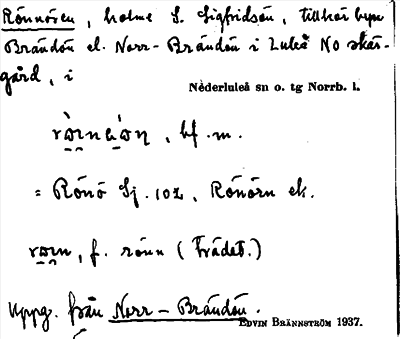 Rönnören, holme S. Sigfridsön, tillhör byn
Brändön el. Norr-Brändön i Luleå NO skär-
gård, i
Nederluleå sn o. tg Norrb. l.
, bf. m.
= Rönö Sj. 102, Rönörn ek.
, f. rönn (trädet.)
Uppg. från Norr-Brändön.
EDVIN BRÄNNSTRÖM 1937.